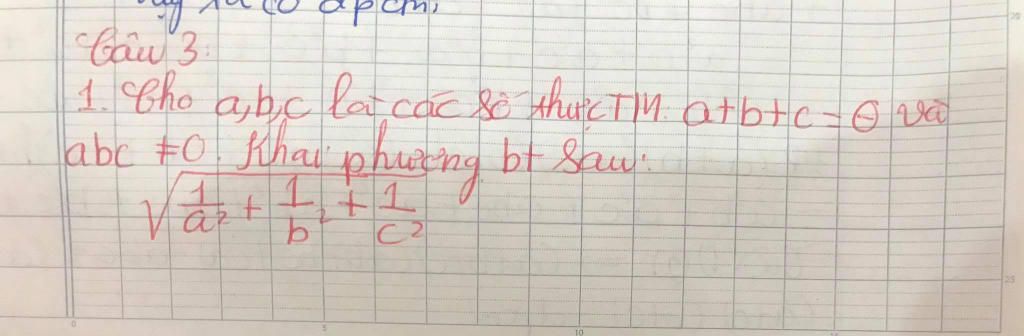 xa có đpcm,
Câu 3:
1. Cho a,b,c là các số thực TM. a+b+c=0 và
abc ≠0. Khai phương bt sau:
√(1/a² + 1/b² + 1/c²)
20
25
0 5 10